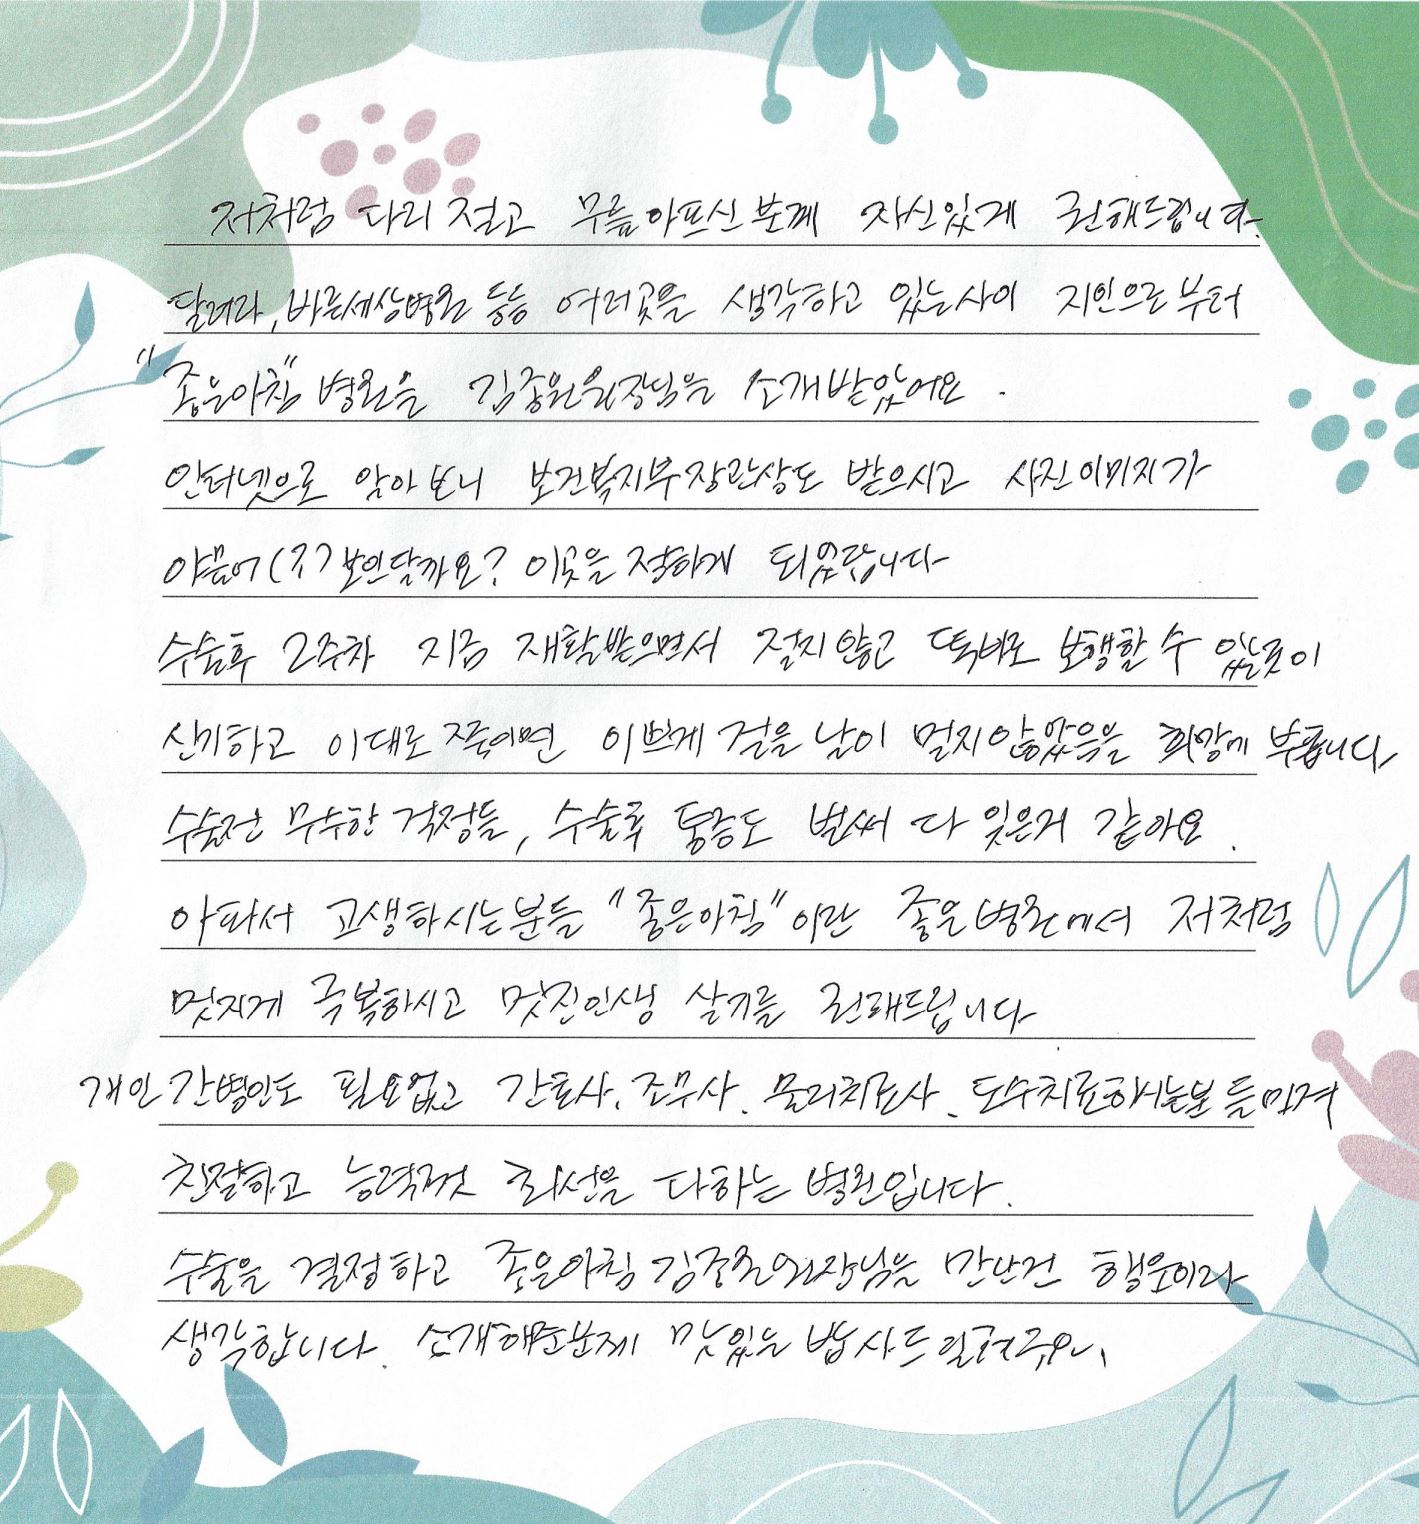 저처럼 다리 절고 무릎아프신분께 자신있게 권해드립니다.
달려라, 바른세상병원 등등 여러곳을 생각하고 있는사이 지인으로부터
"좋은아침" 병원을 김종원원장님을 소개받았어요.
인터넷으로 알아보니 보건복지부장관상도 받으시고 사진이미지가
야물어(??) 보인달까요? 이곳을 정하게 되었답니다
수술후 2주차 지금 재활받으면서 절지않고 똑바로 보행할 수 있는것이
신기하고 이대로 쭉이면 이쁘게 걸을 날이 멀지않았음을 희망에 부풉니다
수술전 무수한 걱정들, 수술후 통증도 벌써 다 잊은거 같아요.
아파서 고생하시는분들 "좋은아침"이란 좋은병원에서 저처럼
멋지게 극복하시고 멋진인생 살기를 권해드립니다
개인간병인도 필요없고 간호사, 조무사, 물리치료사, 도수치료하시는분들마저
친절하고 능력껏 최선을 다하는 병원입니다.
수술을 결정하고 좋은아침 김종원원장님을 만난건 행운이라
생각합니다. 소개해준분께 맛있는 밥 사드릴려구요.